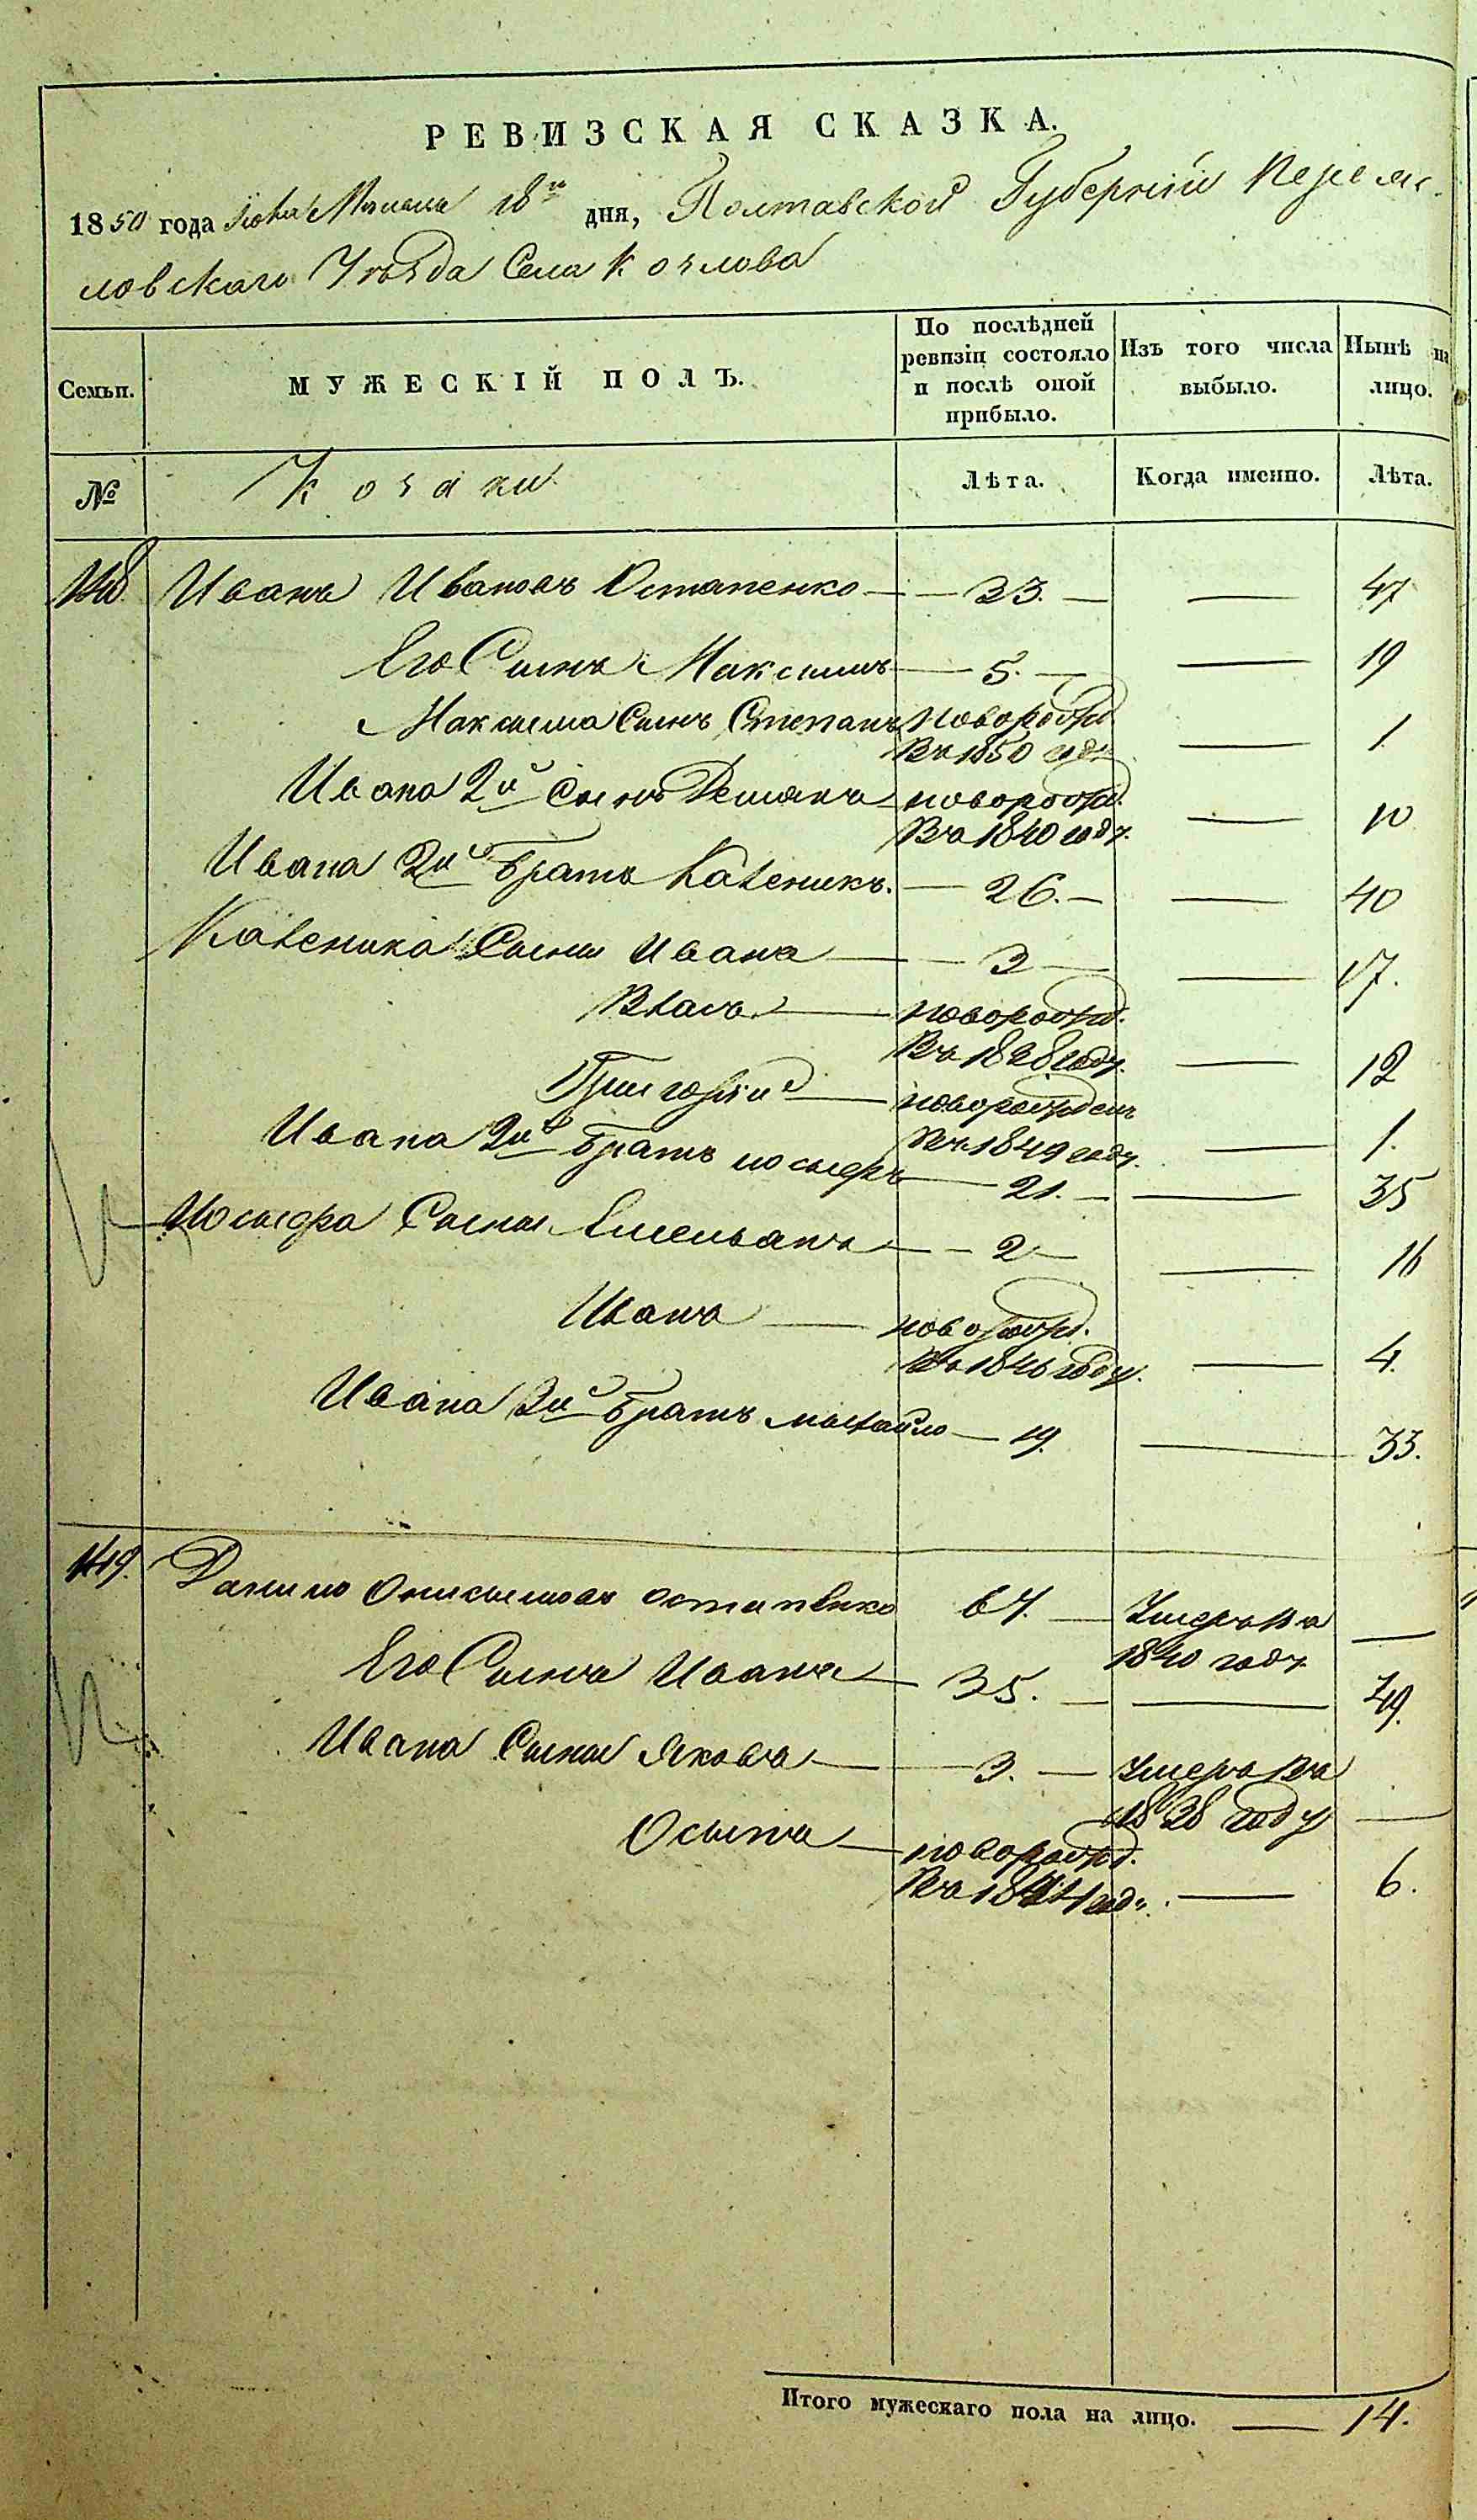 РЕВИЗСКАЯ СКАЗКА.
1850 года Іюня Мѣсяца 18го дня, Полтавской Губерніи Переяс-
ловскаго Уѣзда Села Козлова
Семьи.
МУЖЕСКІЙ ПОЛЪ.
По послѣдней ревизіи состояло и послѣ оной прибыло.
Изъ того числа выбыло.
Нынѣ на лицо.
№
Козаки
Лѣта.
Когда именно.
Лѣта.
148 Иванъ Ивановъ Остапенко — 33. — — 47
Его Сынъ Максимъ — 5. — — 19
Максима Сынъ Степанъ новорожд. — 1.
Въ 1850 годѣ
Ивана 2й Сынъ Демянъ новорожд. — 10
Въ 1840 году.
Ивана 2й братъ Каленикъ. — 26. — — 40
Каленика Сыны Иванъ — 3 — — 17.
Власъ — новорожд.
Въ 1838 году. — 12
Григорій — новорожден
Въ 1849 году. — 1.
Ивана 3й братъ — 21. — — 35
Сыны Емельянъ — 2 — — 16
Иванъ — новорожд.
Въ 1846 году. — 4.
Ивана 4й братъ Михайло — 19. — 33.
149. Данило Онисимовъ Остапенко 64. — Умеръ въ —
1840 году
Его Сынъ Иванъ — 35. — — 49.
Ивана Сыны Яковъ — 3. — Умеръ въ
1838 году —
Осипъ — новорожд.
Въ 1844 год. — 6.
Итого мужескаго пола на лицо. — 14.